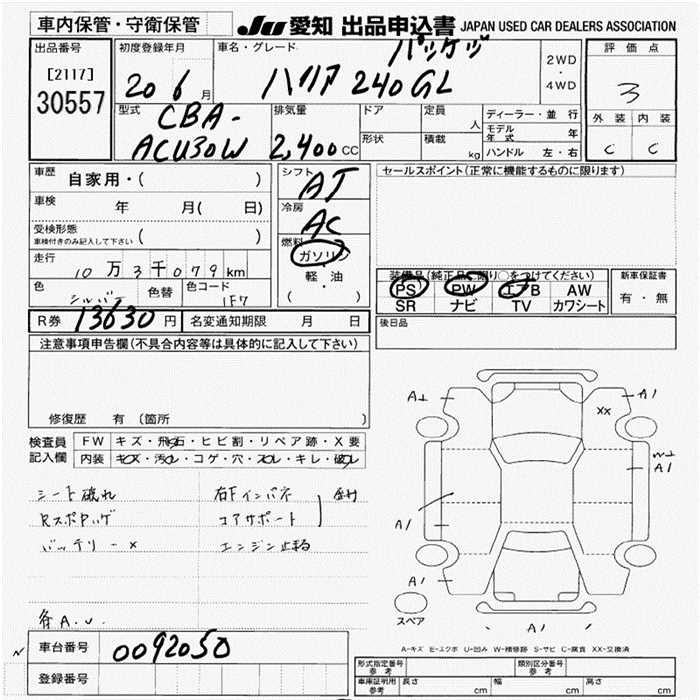 車内保管・守衛保管 JU 愛知 出品申込書 JAPAN USED CAR DEALERS ASSOCIATION
出品番号 [2117] 30557
初度登録年月 20 6 月
車名・グレード ハリア 240GL
2WD ・ 4WD
評価点 3
外装 C 内装 C
型式 CBA-ACU30W
排気量 2,400 CC
ドア 形状
定員 人 積載 kg
ディーラー・並行
モデル年式 年
ハンドル 左・右
車歴 自家用・( )
車検 年 月( 日)
受検形態 車検付きのみ記入して下さい ( )
走行 10万3千079km
色 シルバー 色替 色コード 1F7
シフト AT
冷房 AC
燃料 ガソリン ・ 軽・油 ( )
セールスポイント(正常に機能するものに限ります)
装備品(純正品に限り○をつけてください)
PS PW エアB AW
SR ナビ TV カワシート
新車保証書 有・無
R券 13630円 名変通知期限 月 日
後日品
注意事項申告欄(不具合内容等は具体的に記入して下さい)
修復歴 有(箇所 )
検査員記入欄
FW キズ・飛石・ヒビ割・リペア跡・X要
内装 キズ・汚れ・コゲ・穴・スレ・キレ・破れ
シート破れ
右Fインパネ
コアサポート
バッテリー×
エンジン止まる
各A.U.
A1
XX
A1
A1
A1
A1
A1
スペア
A-キズ E-エクボ U-凹み W-補修跡 S-サビ C-腐食 XX-交換済
車台番号 0092050
登録番号
形式指定番号 参考
類別区分番号 参考
車庫証明用 参考 長さ cm 幅 cm 高さ cm